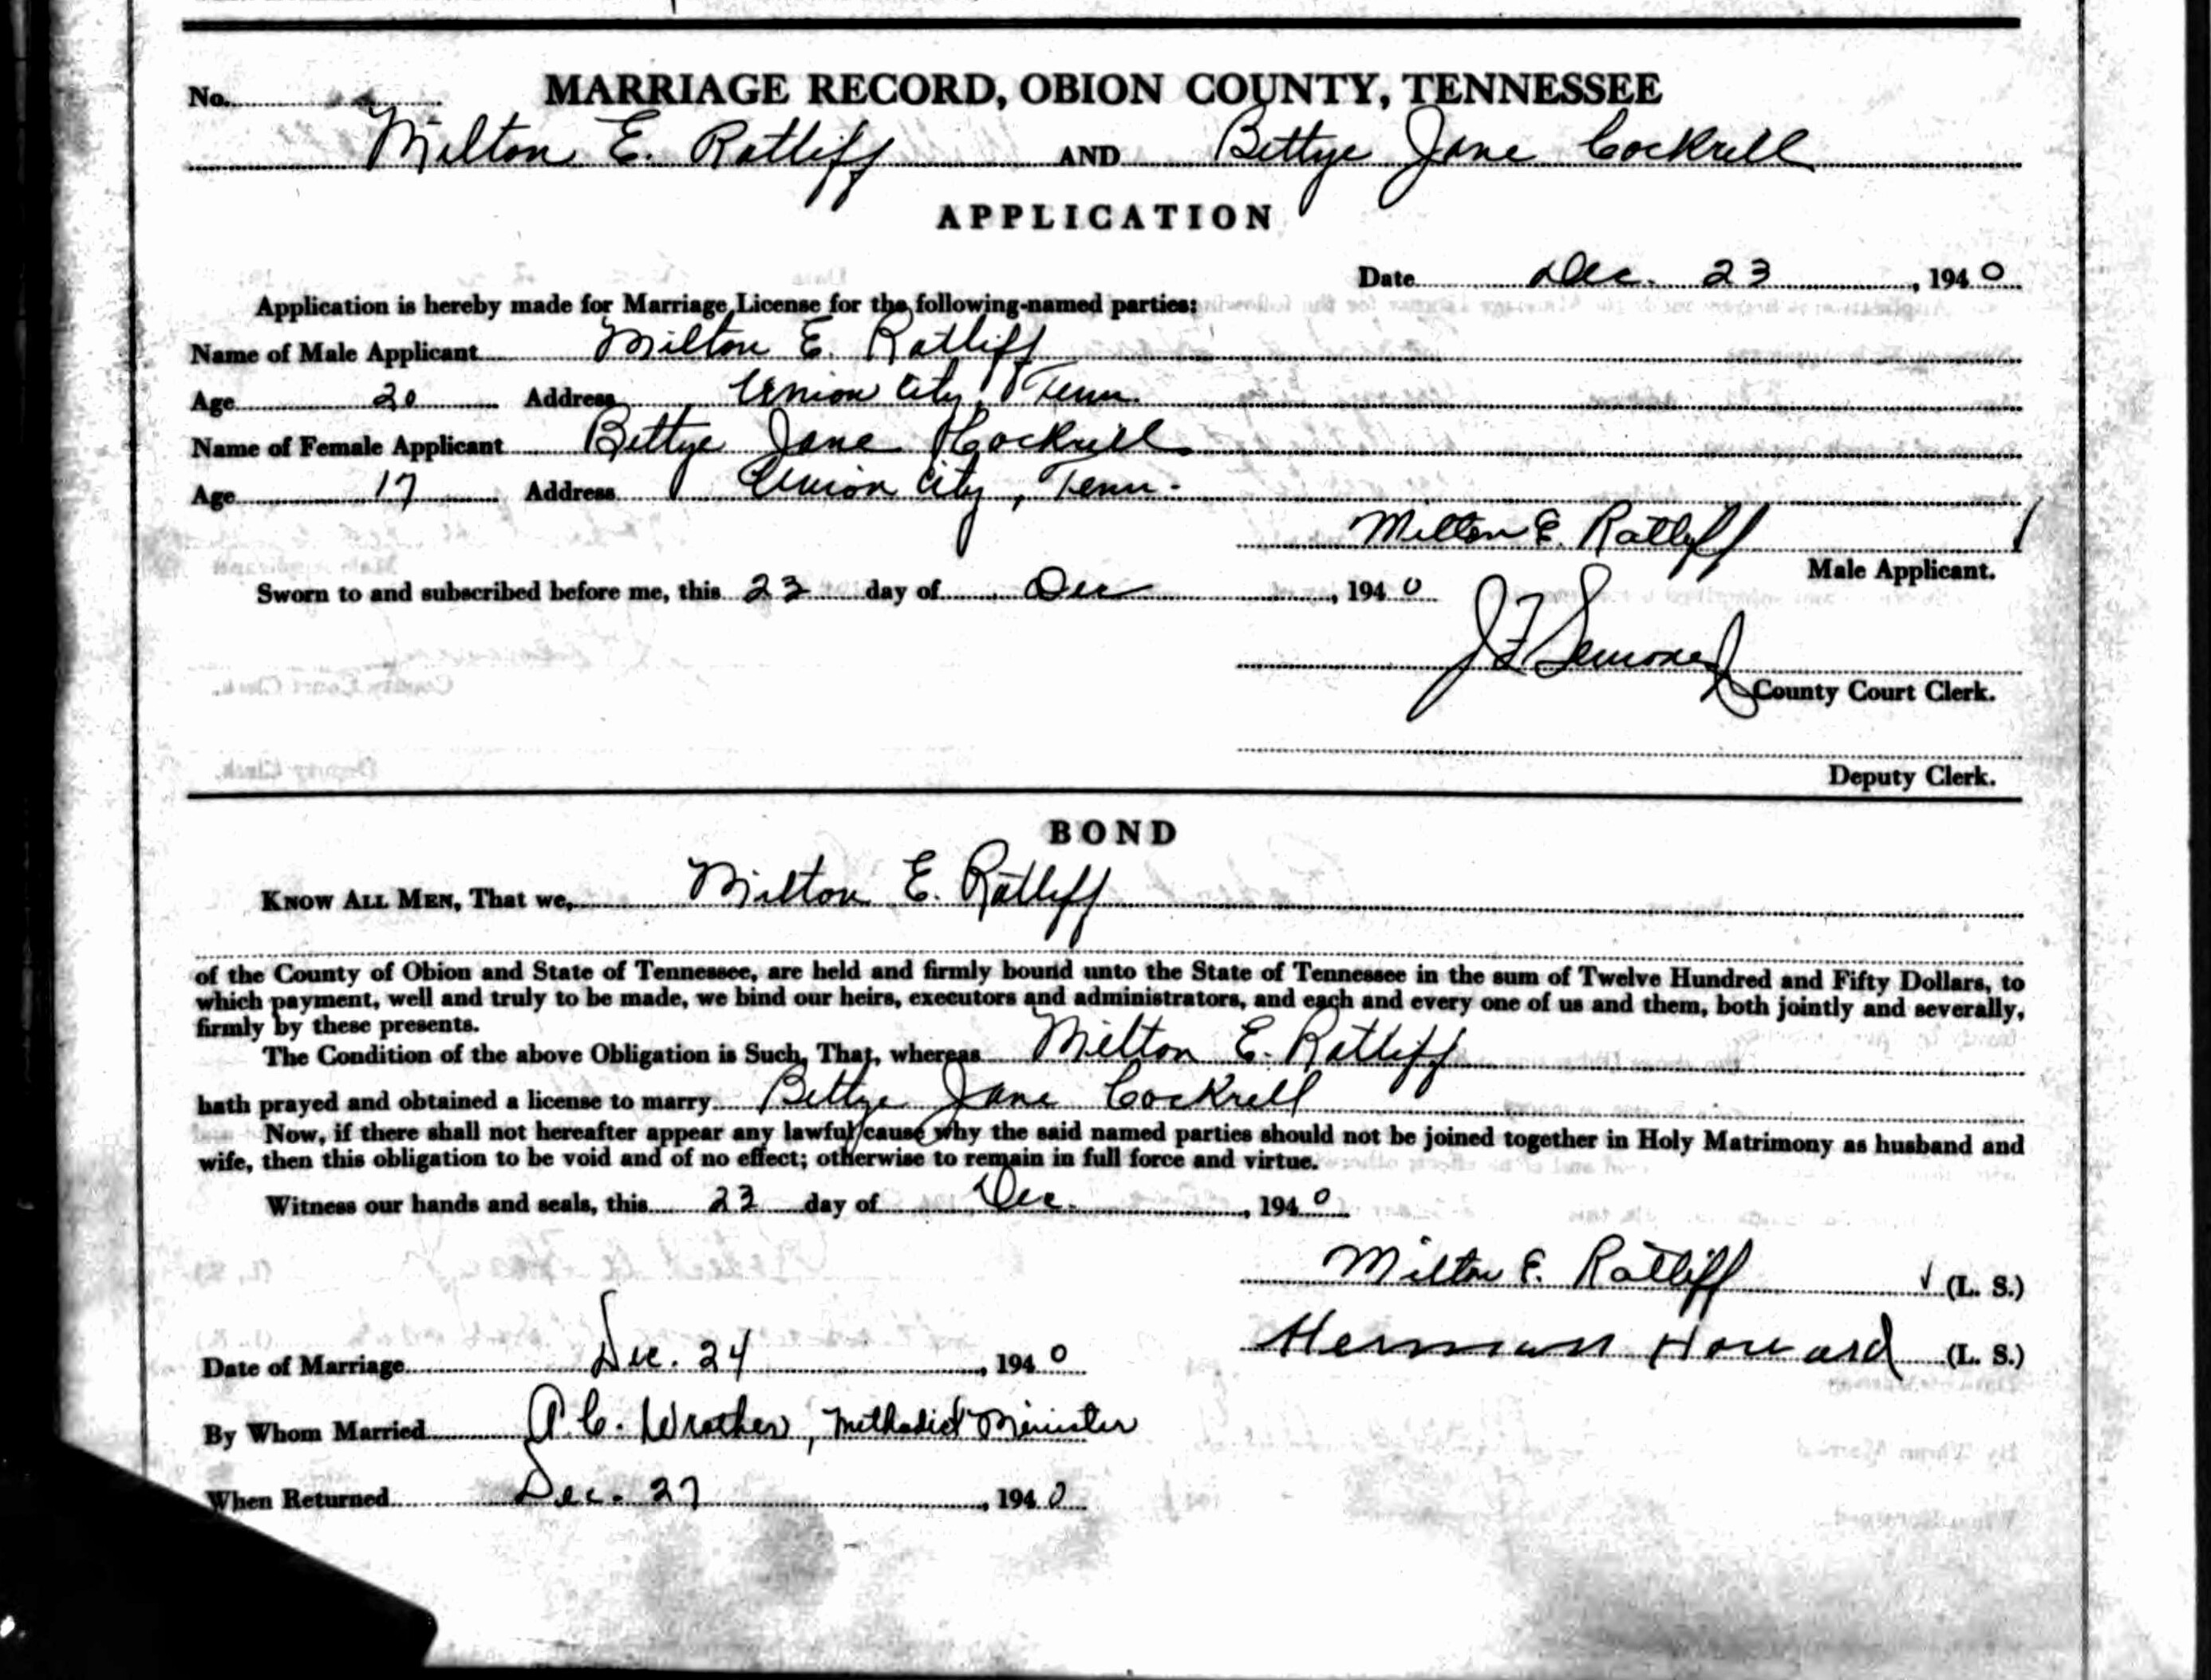 No.
MARRIAGE RECORD, OBION COUNTY, TENNESSEE
Milton E. Ratliff AND Bettye Jane Cockrell
APPLICATION
Date Dec. 23, 1940
Application is hereby made for Marriage License for the following-named parties:
Name of Male Applicant Milton E. Ratliff
Age 20 Address Union City, Tenn.
Name of Female Applicant Bettye Jane Cockrell
Age 17 Address Union City, Tenn.
Milton E. Ratliff
Male Applicant.
Sworn to and subscribed before me, this 23 day of Dec, 1940
J F Semones
County Court Clerk.
Deputy Clerk.
BOND
KNOW ALL MEN, That we, Milton E. Ratliff
of the County of Obion and State of Tennessee, are held and firmly bound unto the State of Tennessee in the sum of Twelve Hundred and Fifty Dollars, to
which payment, well and truly to be made, we bind our heirs, executors and administrators, and each and every one of us and them, both jointly and severally,
firmly by these presents.
The Condition of the above Obligation is Such, That, whereas Milton E. Ratliff
hath prayed and obtained a license to marry Bettye Jane Cockrell
Now, if there shall not hereafter appear any lawful cause why the said named parties should not be joined together in Holy Matrimony as husband and
wife, then this obligation to be void and of no effect; otherwise to remain in full force and virtue.
Witness our hands and seals, this 23 day of Dec., 1940
Milton E. Ratliff (L. S.)
Herman Howard (L. S.)
Date of Marriage Dec. 24, 1940
By Whom Married A. C. Wrather, Methodist Minister
When Returned Dec. 27, 1940